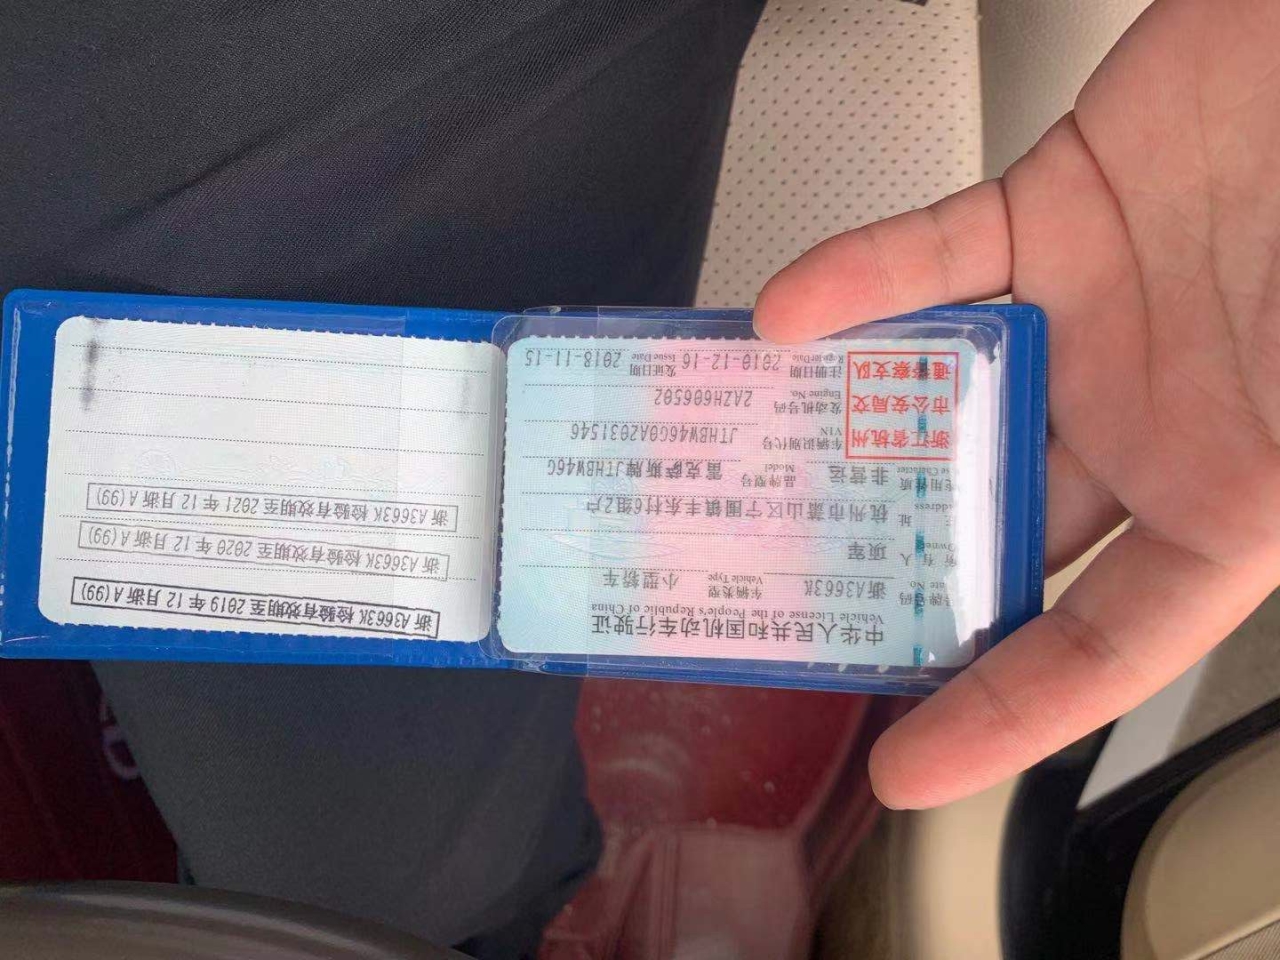 中华人民共和国机动车行驶证
Vehicle License of the People's Republic of China
号牌号码 浙A3663K 车辆类型 小型轿车
Plate No. Vehicle Type
所有人 项军
Owner
住址 杭州市萧山区宁围镇丰东村6组2户
Address
使用性质 非营运 品牌型号 雷克萨斯牌JTHBW46G
Use Character Model
浙江省杭州
市公安局交
通警察支队
车辆识别代号 JTHBW46G0A2031546
VIN
发动机号码 2AZH606502
Engine No.
注册日期 2010-12-16 发证日期 2018-11-15
Register Date Issue Date
浙A3663K 检验有效期至 2019 年 12 月浙 A (99)
浙A3663K 检验有效期至 2020 年 12 月浙 A (99)
浙A3663K 检验有效期至 2021 年 12 月浙 A (99)